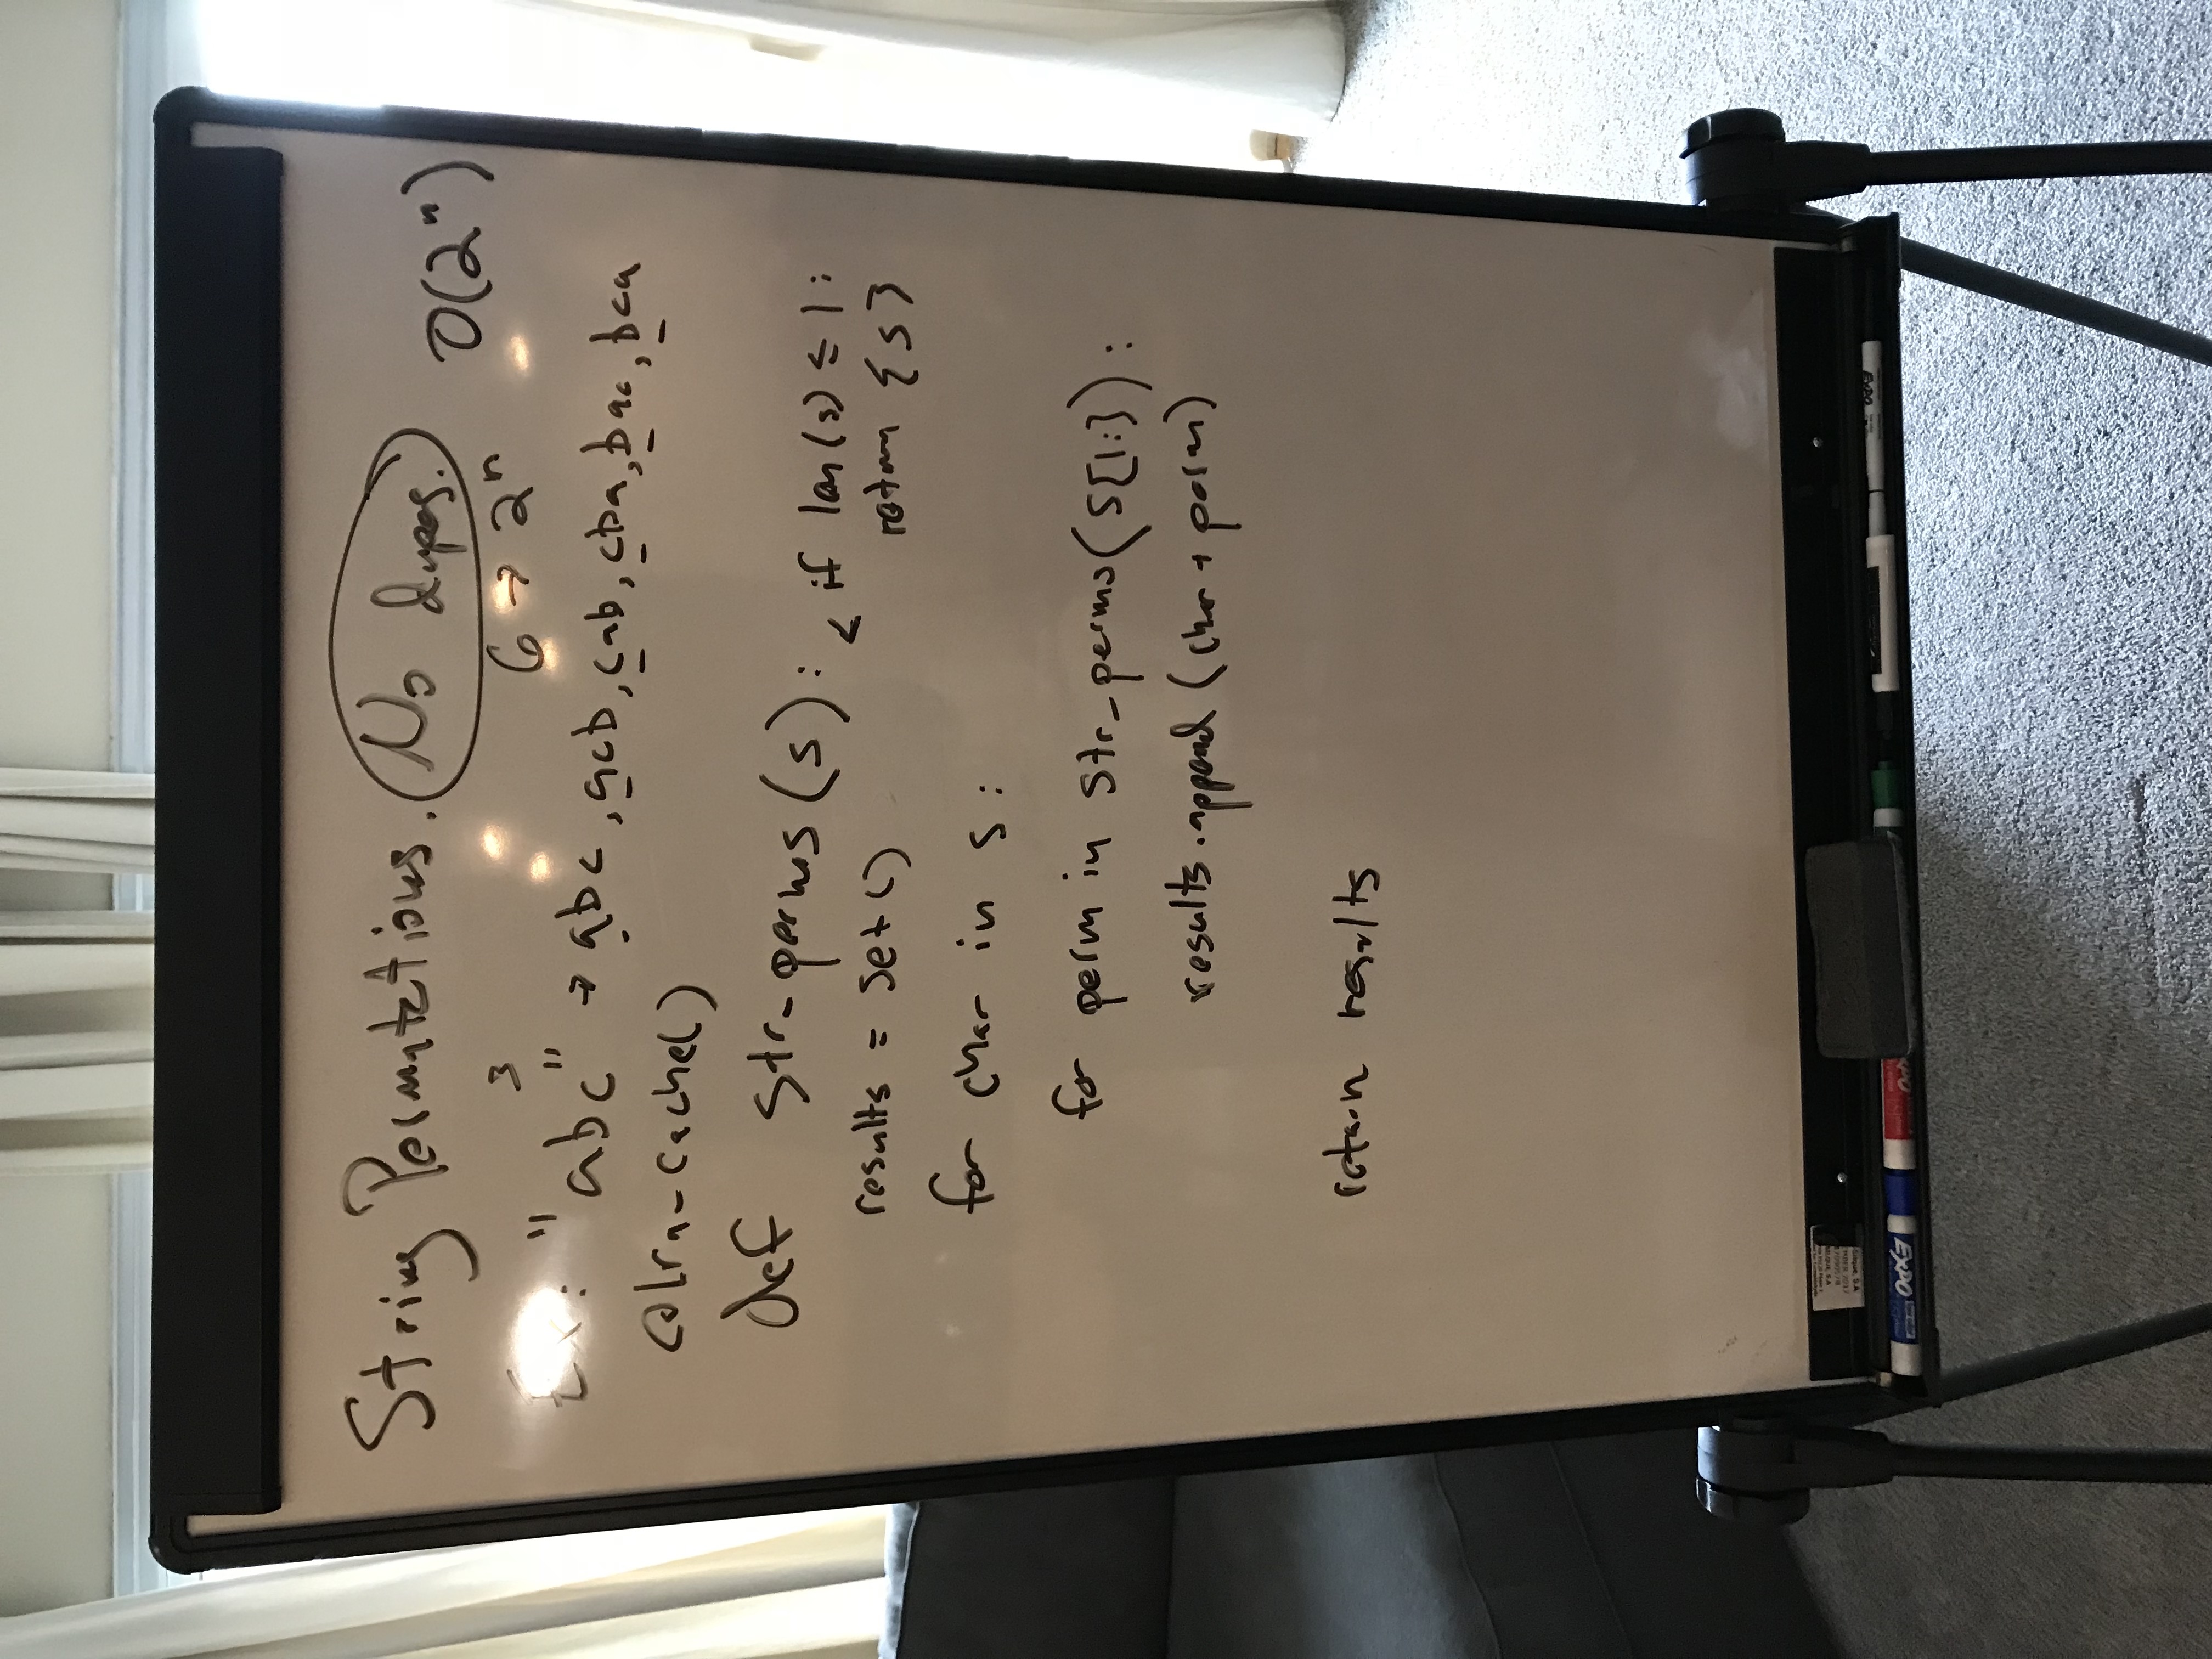 String Permutations. No dupes. O(2ⁿ)
3
6 → 2ⁿ
Ex: "abc" → abc, acb, cab, cba, bac, bca
@lru-cache()
def str_perms(s):
< if len(s) ≤ 1:
return {s}
results = set()
for char in s:
for perm in str_perms(s[1:]):
results.append(char + perm)
return results
EXPO
EXPO